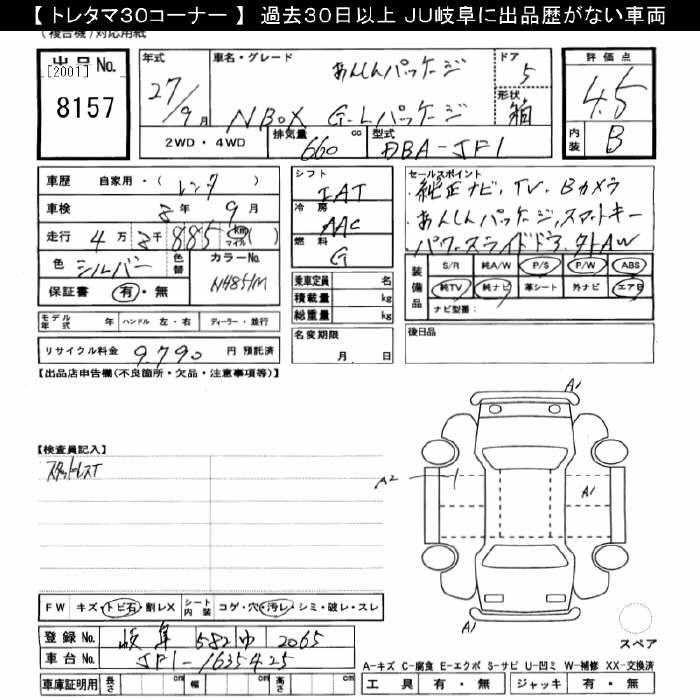 【 トレタマ30コーナー 】 過去30日以上 JU岐阜に出品歴がない車両
(複合機)対応用紙
出品No.
[2001]
8157
年式
27/9月
車名・グレード
あんしんパッケージ
N BOX G-Lパッケージ
ドア
5
形状
箱
評価点
4.5
内装
B
2WD・4WD
排気量 660 cc
型式 DBA-JF1
車歴 自家用・( レンタ )
車検 年 9月
走行 4万 千 km マイル
色 シルバー 色替
カラーNo. NH851M
保証書 有・無
シフト
IAT
冷房
AAC
燃料
G
セールスポイント
純正ナビ, TV, Bカメラ
あんしんパッケージ, スマートキー
パワースライドドア, 外AW
装備品
S/R 純A/W P/S P/W ABS
純TV 純ナビ 革シート 外ナビ エアB
ナビ型番:
乗車定員 名
積載量 kg
総重量 kg
モデル年式 年 ハンドル 左・右 ディーラー・並行
名変期限 月 日
後日品
リサイクル料金 9,790 円 預託済
【出品店申告欄(不良箇所・欠品・注意事項等)】
【検査員記入】
スタッドレスT
A1
A2
A1
A1
FW キズ・トビ石・割レX シート内装 コゲ・穴・汚レ・シミ・破レ・スレ
登録No. 岐阜 582 ゆ 2065
車台No. JF1-1635425
スペア
A-キズ C-腐食 E-エクボ S-サビ U-凹ミ W-補修 XX-交換済
車庫証明用 長さ cm 幅 cm 高さ cm
工具 有・無 ジャッキ 有・無